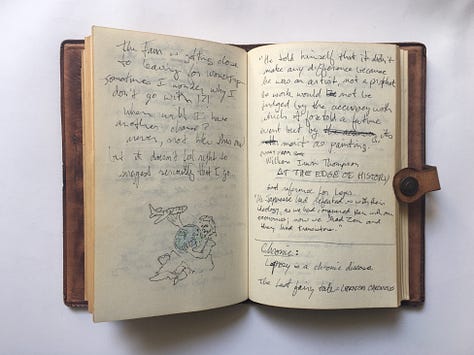 the Fam is getting close
to leaving for
sometimes I wonder why I
don't go with 'em?
when will I have
another chance?
never, not like this one
but it doesn't feel right to
suggest seriously that I go.
"He told himself that it didn't
make any difference because
he was an artist, not a prophet
his work would not be
judged by the accuracy with
which it foretold a future
event but by its
merit as painting.
William Irwin Thompson
AT THE EDGE OF HISTORY
and reference for
"The Japanese had defeated us with their
ideology, as we had conquered them with our
economics; now we had Zen and
they had transistors."
Chronic:
Leprosy is a chronic disease
The last fairy tale